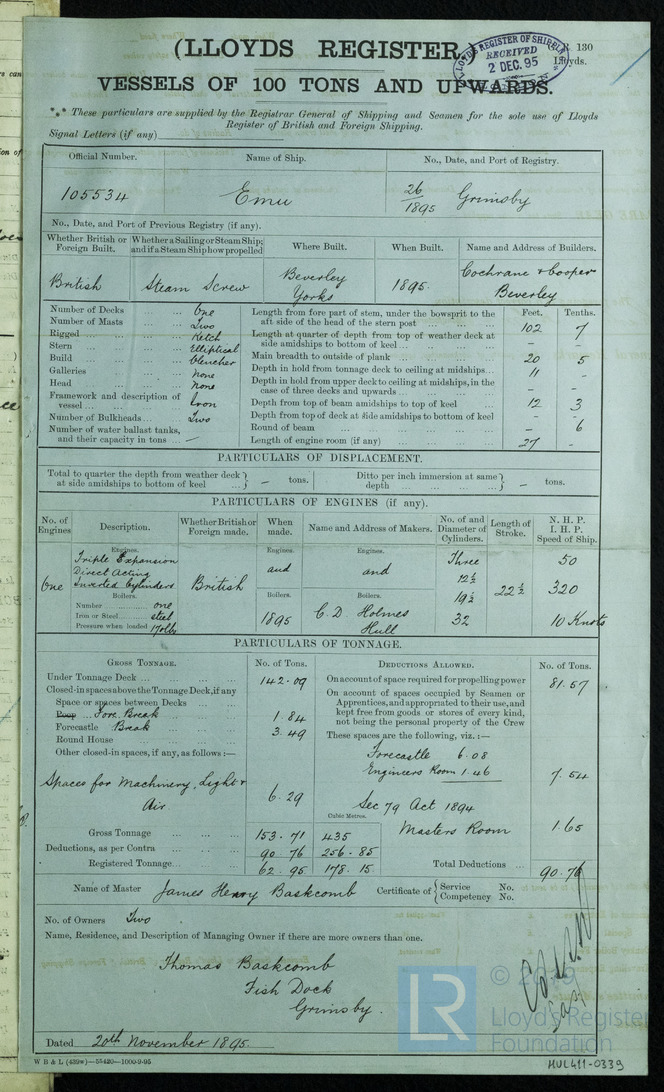 (LLOYDS REGISTER.)
R. 130
Lloyds.
LLOYD'S REGISTER OF SHIPPING
RECEIVED
2 DEC. 95
VESSELS OF 100 TONS AND UPWARDS.
*** These particulars are supplied by the Registrar General of Shipping and Seamen for the sole use of Lloyds
Register of British and Foreign Shipping.
Signal Letters (if any)
Official Number. Name of Ship. No., Date, and Port of Registry.
105534 Emu 26/1895 Grimsby
No., Date, and Port of Previous Registry (if any).
Whether British or Foreign Built. Whether a Sailing or Steam Ship; and if a Steam Ship how propelled Where Built. When Built. Name and Address of Builders.
British Steam Screw Beverley Yorks 1895. Cochrane & Cooper Beverley
Feet. Tenths.
Number of Decks ... One
Number of Masts ... Two
Rigged ... Ketch
Stern ... Elliptical
Build ... Clencher
Galleries ... None
Head ... None
Framework and description of vessel ... Iron
Number of Bulkheads ... Two
Number of water ballast tanks, and their capacity in tons ... —
Length from fore part of stem, under the bowsprit to the aft side of the head of the stern post ... 102 7
Length at quarter of depth from top of weather deck at side amidships to bottom of keel ... – –
Main breadth to outside of plank ... 20 5
Depth in hold from tonnage deck to ceiling at midships ... 11 –
Depth in hold from upper deck to ceiling at midships, in the case of three decks and upwards ... – –
Depth from top of beam amidships to top of keel ... 12 3
Depth from top of deck at side amidships to bottom of keel – –
Round of beam ... – 6
Length of engine room (if any) ... 27 –
PARTICULARS OF DISPLACEMENT.
Total to quarter the depth from weather deck at side amidships to bottom of keel ... } — tons. Ditto per inch immersion at same depth ... } — tons.
PARTICULARS OF ENGINES (if any).
No. of Engines Description. Whether British or Foreign made. When made. Name and Address of Makers. No. of and Diameter of Cylinders. Length of Stroke. N. H. P. I. H. P. Speed of Ship.
Engines. Engines. Engines.
One Triple Expansion Direct Acting Inverted Cylinders British and and Three 12½ 19½ 32 22½ 50 320 10 Knots
Boilers. Boilers. Boilers.
Number ... one
Iron or Steel ... steel
Pressure when loaded 170 lbs
1895 C. D. Holmes Hull
PARTICULARS OF TONNAGE.
GROSS TONNAGE. No. of Tons. DEDUCTIONS ALLOWED. No. of Tons.
Under Tonnage Deck ... 142.09
Closed-in spaces above the Tonnage Deck, if any
Space or spaces between Decks ...
Poop ... Fore Break 1.84
Forecastle Break 3.49
Round House ...
Other closed-in spaces, if any, as follows:—
Spaces for Machinery, Light & Air 6.29
On account of space required for propelling power 81.57
On account of spaces occupied by Seamen or Apprentices, and appropriated to their use, and kept free from goods or stores of every kind, not being the personal property of the Crew
These spaces are the following, viz.:—
Forecastle 6.08
Engineers Room 1.46 7.54
Sec 79 Act 1894
Masters Room 1.65
Cubic Metres.
Gross Tonnage ... 153.71 435
Deductions, as per Contra ... 90.76 256.85
Registered Tonnage ... 62.95 178.15
Total Deductions ... 90.76
Name of Master James Henry Baskcomb Certificate of { Service No. Competency No.
No. of Owners Two
Name, Residence, and Description of Managing Owner if there are more owners than one.
Thomas Baskcomb
Fish Dock
Grimsby.
Dated 20th November 1895.
W B & L (439w)—55420—1000-9-95
© 2019
LR
Lloyd's Register
Foundation
HUL411-0339